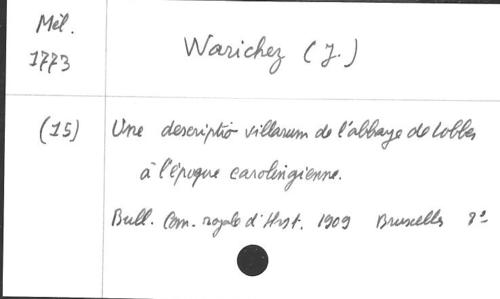 Mél.
1773
Warichez (J.)
(15)
Une descriptio villarum de l'abbaye de Lobbes
à l'époque carolingienne.
Bull. Com. royale d'Hist. 1909 Bruxelles 8°